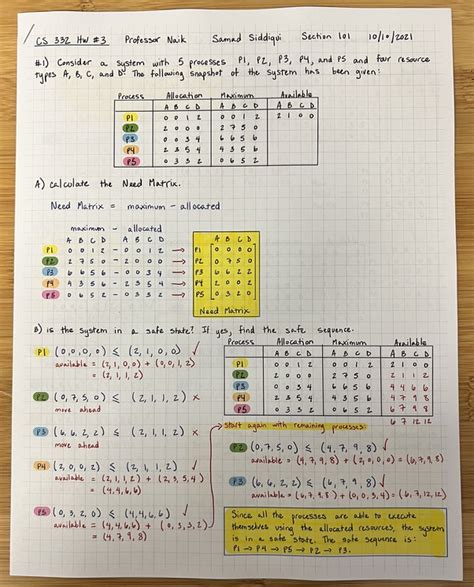 CS 332 HW #3 Professor Naik Samad Siddiqui Section 101 10/10/2021
#1) Consider a system with 5 processes P1, P2, P3, P4, and P5 and four resource
types A, B, C, and D. The following snapshot of the system has been given:
Process Allocation Maximum Available
A B C D A B C D A B C D
P1 0 0 1 2 0 0 1 2 2 1 0 0
P2 2 0 0 0 2 7 5 0
P3 0 0 3 4 6 6 5 6
P4 2 3 5 4 4 3 5 6
P5 0 3 3 2 0 6 5 2
A) Calculate the Need Matrix.
Need Matrix = maximum - allocated
maximum - allocated
A B C D A B C D A B C D
P1 0 0 1 2 - 0 0 1 2 → P1 0 0 0 0
P2 2 7 5 0 - 2 0 0 0 → P2 0 7 5 0
P3 6 6 5 6 - 0 0 3 4 → P3 6 6 2 2
P4 4 3 5 6 - 2 3 5 4 → P4 2 0 0 2
P5 0 6 5 2 - 0 3 3 2 → P5 0 3 2 0
Need Matrix
B) is the system in a safe state? If yes, find the safe sequence.
Process Allocation Maximum Available
A B C D A B C D A B C D
P1 0 0 1 2 0 0 1 2 2 1 0 0
P2 2 0 0 0 2 7 5 0 2 1 1 2
P3 0 0 3 4 6 6 5 6 4 4 6 6
P4 2 3 5 4 4 3 5 6 4 7 9 8
P5 0 3 3 2 0 6 5 2 6 7 9 8
6 7 12 12
P1 (0,0,0,0) ≤ (2,1,0,0) ✓
available = (2,1,0,0) + (0,0,1,2)
= (2,1,1,2)
P2 (0,7,5,0) ≤ (2,1,1,2) ×
move ahead
P3 (6,6,2,2) ≤ (2,1,1,2) ×
move ahead
P4 (2,0,0,2) ≤ (2,1,1,2) ✓
available = (2,1,1,2) + (2,3,5,4)
= (4,4,6,6)
P5 (0,3,2,0) ≤ (4,4,6,6) ✓
available = (4,4,6,6) + (0,3,3,2)
= (4,7,9,8)
start again with remaining processes.
P2 (0,7,5,0) ≤ (4,7,9,8) ✓
available = (4,7,9,8) + (2,0,0,0) = (6,7,9,8)
P3 (6,6,2,2) ≤ (6,7,9,8) ✓
available = (6,7,9,8) + (0,0,3,4) = (6,7,12,12)
Since all the processes are able to execute
themselves using the allocated resources, the system
is in a safe state. The safe sequence is:
P1 → P4 → P5 → P2 → P3.